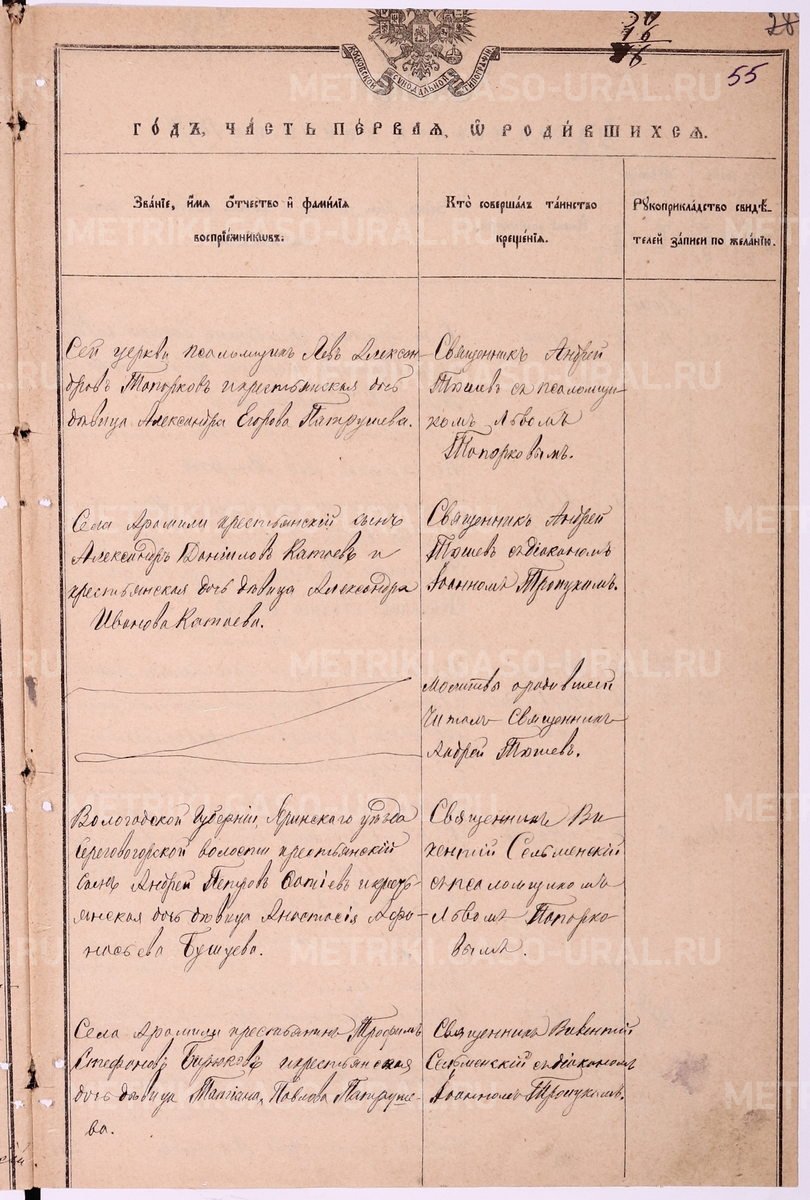 28
30
16
55
МОСКОВСКОЙ СѴНОДАЛЬНОЙ ТИПОГРАФІИ
ГО́ДЪ, ЧА́СТЬ ПЕ́РВАЯ, Ѡ҆ РОДИ́ВШИХСѦ.
Зва́нїе, и҆́мѧ ѻ҆́тчество и҆ фами́лїѧ
воспрїе́мникѡвъ.
Кто̀ соверша́лъ та́инство
креще́нїѧ.
Рꙋкоприкла́дство свидѣ́-
телей за́писи по жела́нїю.
Сей церкви псаломщикъ Левъ Алексан-
дровъ Топорковъ и крестьянская дочь
дѣвица Александра Егорова Патрушева.
Священникъ Андрей
Тюшевъ съ псаломщи-
комъ Львомъ
Топорковымъ.
Села Арамили крестьянскій сынъ
Александръ Даніиловъ Катаевъ и
крестьянская дочь дѣвица Александра
Иванова Катаева.
Священникъ Андрей
Тюшевъ съ діакономъ
Іоанномъ
Молитвы
читалъ Священникъ
Андрей Тюшевъ.
Вологодской Губерніи, Яринскаго уѣзда
Сереговогорской волости крестьянскій
сынъ Андрей Петровъ и кресть-
янская дочь дѣвица Анастасія Афа-
насьева Бушуева.
Священникъ Ви-
кентій Сельменскій
съ псаломщикомъ
Львомъ Топорко-
вымъ.
Села Арамили крестьянинъ Трофимъ
Стефановъ Бирюковъ и крестьянская
дочь дѣвица Татіана Павлова Патруше-
ва.
Священникъ Викентій
Сельменскій съ діакономъ
Іоанномъ
METRIKI.GASO-URAL.RU